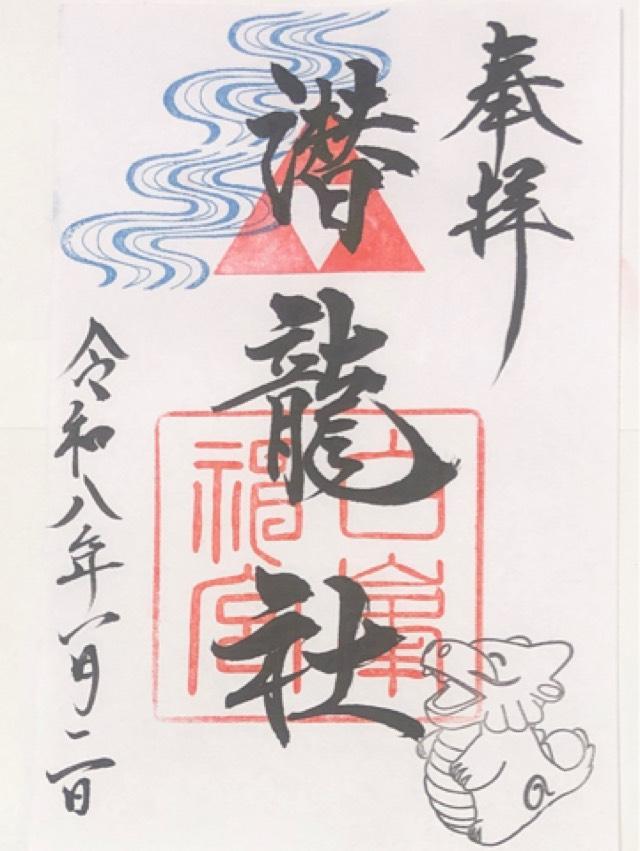 奉拝
潜龍社
白峯
神宮
令和八年八月二日